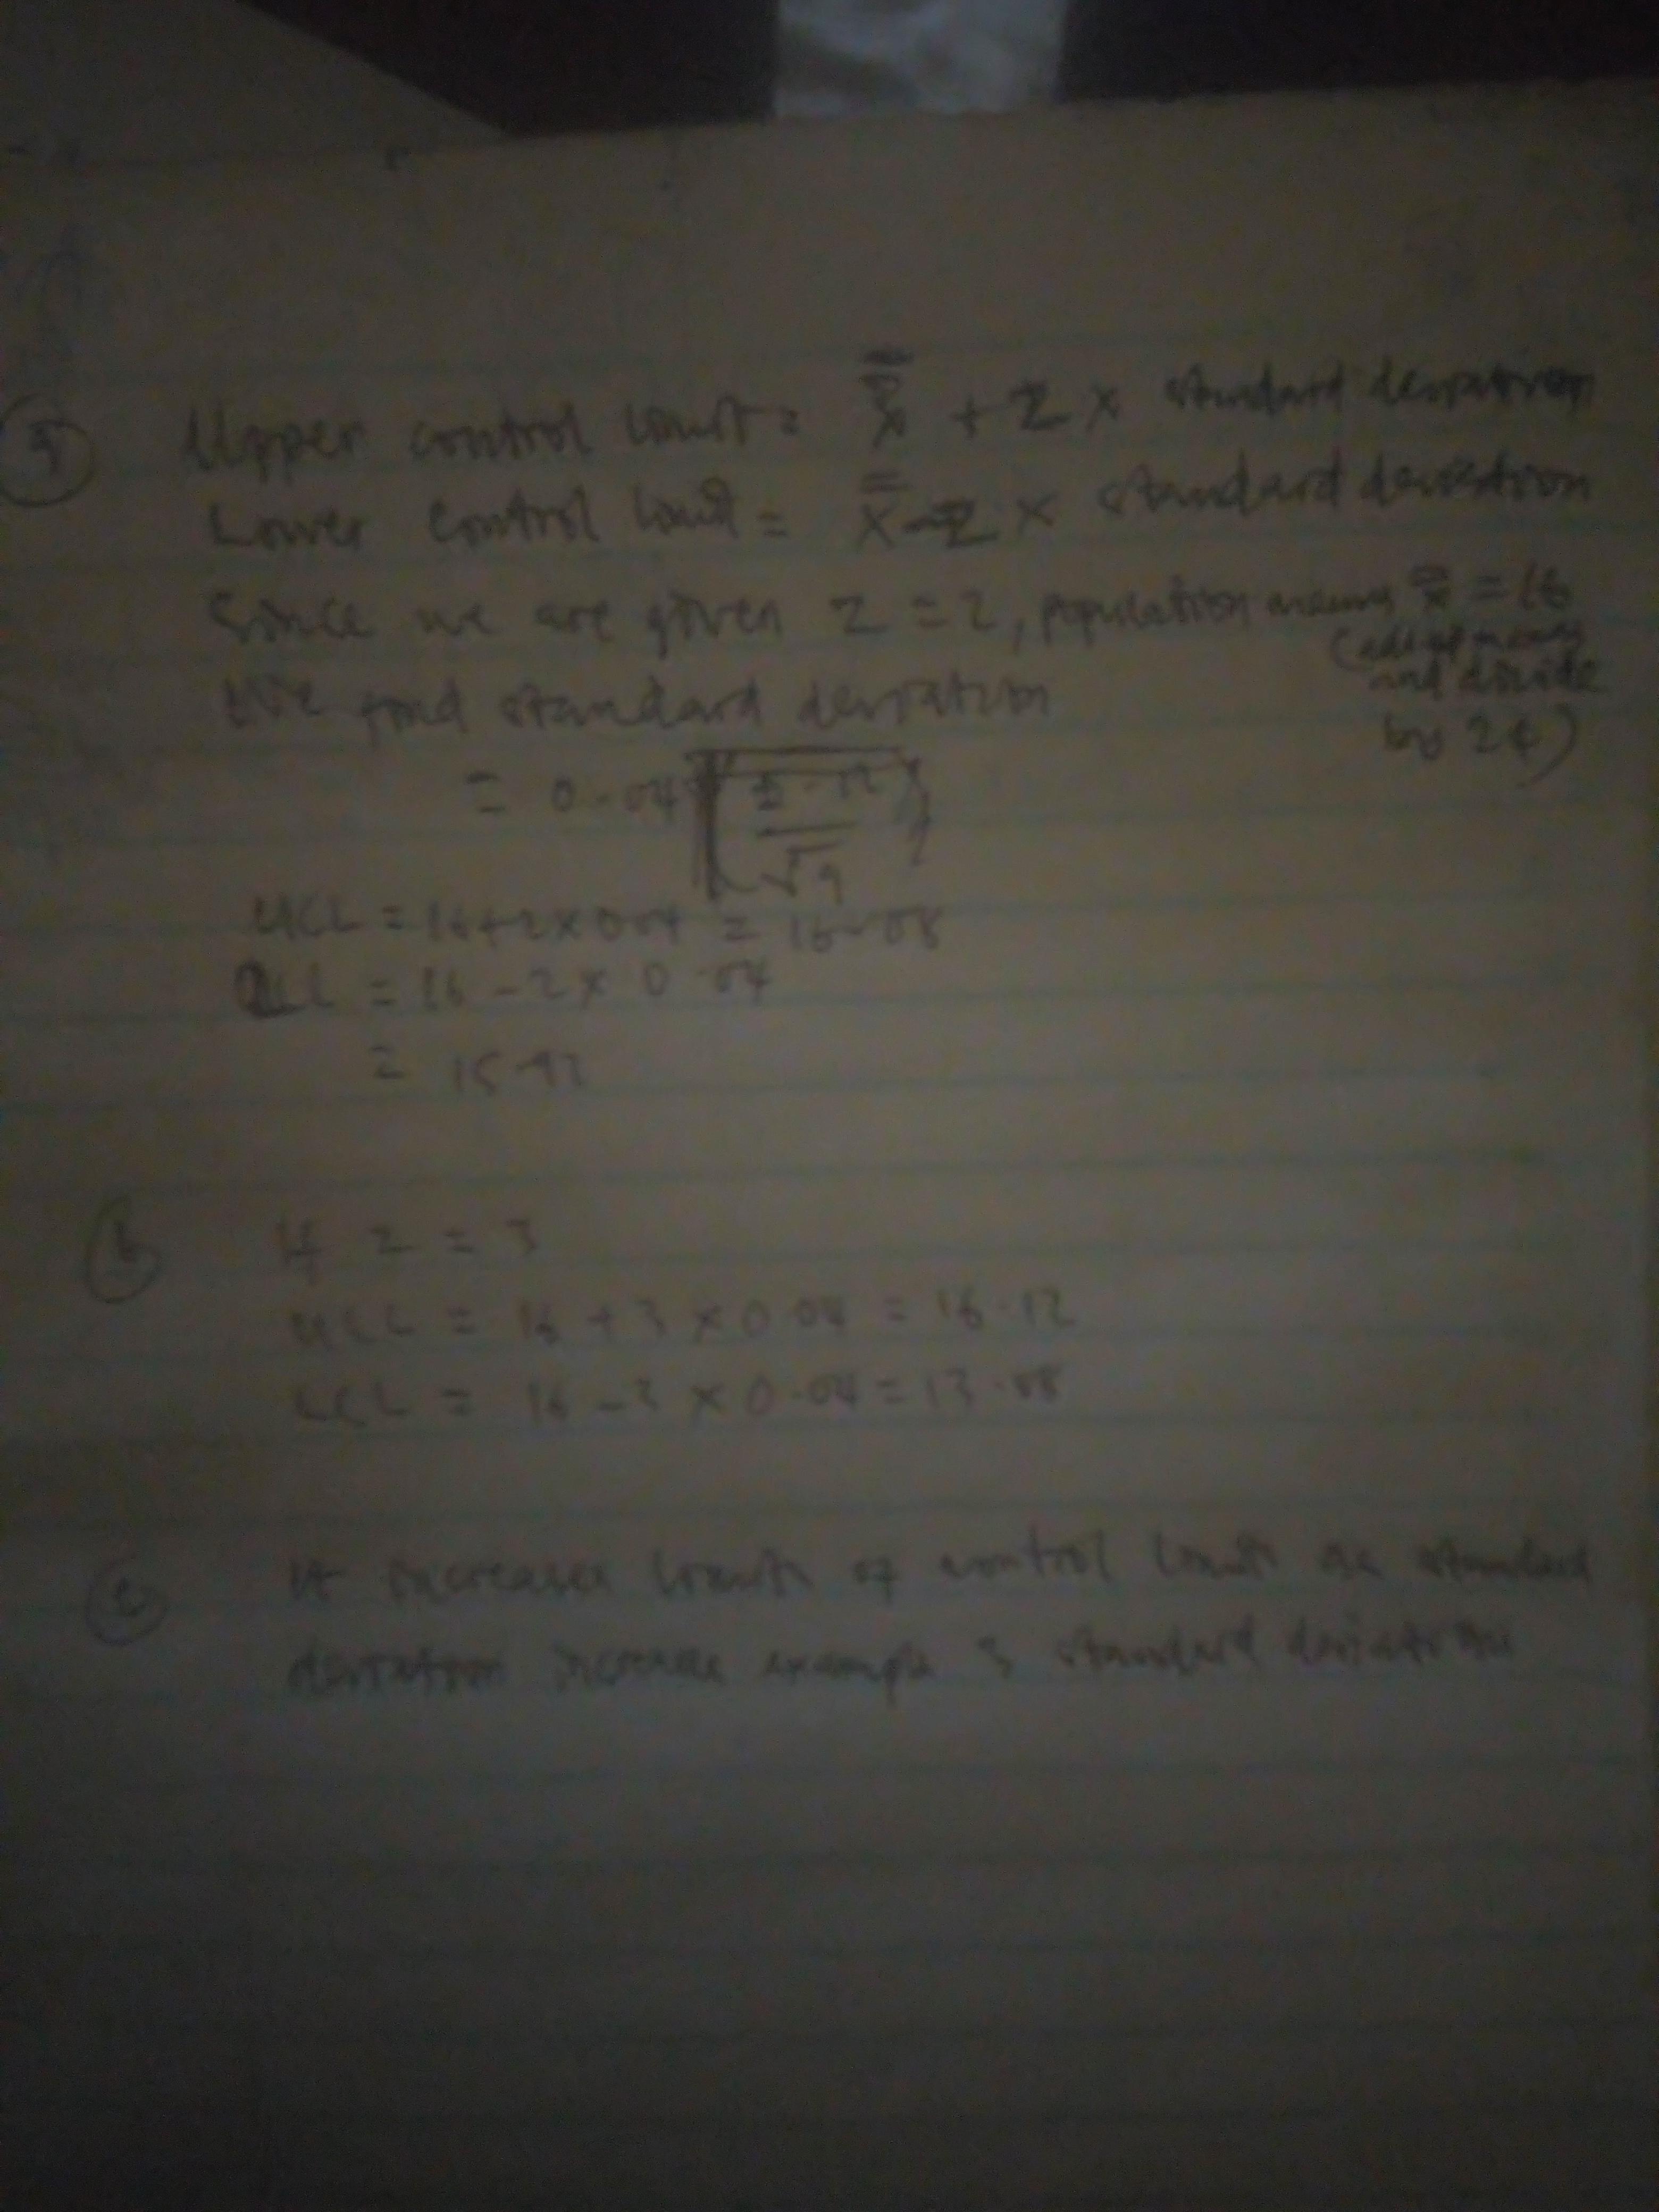 a Upper control limit = x̿ + Z × standard deviation
Lower control limit = x̿ - Z × standard deviation
Since we are given Z = 2, population means x̿ = 16
(add up means
and divide
by 24)
We find standard deviation
= 0.04 √9
UCL = 16 + 2 × 0.04 = 16.08
LCL = 16 - 2 × 0.04
= 15.92
b If Z = 3
UCL = 16 + 3 × 0.04 = 16.12
LCL = 16 - 3 × 0.04 = 13.88
c It increases limits of control limit as standard
deviation increase example 3 standard deviation